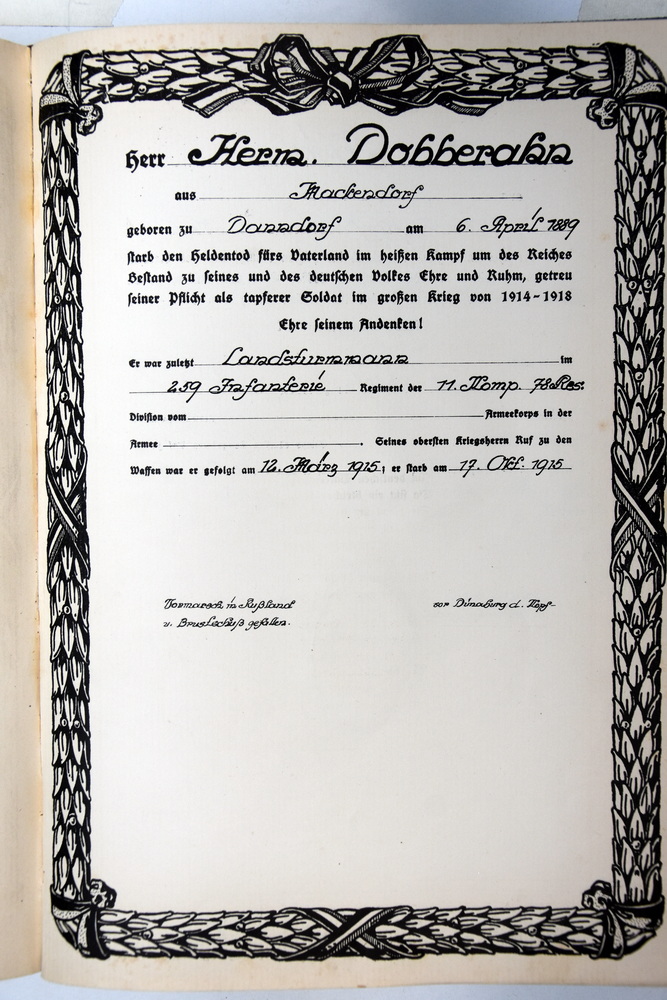 Herr Herm. Dobberahn
aus Mackendorf
geboren zu Danndorf am 6. April 1889
starb den Heldentod fürs Vaterland im heißen Kampf um des Reiches
Bestand zu seines und des deutschen Volkes Ehre und Ruhm, getreu
seiner Pflicht als tapferer Soldat im großen Krieg von 1914-1918
Ehre seinem Andenken!
Er war zuletzt Landsturmmann im
259 Infanterie Regiment der 11. Komp. 78 Res.
Division vom Armeekorps in der
Armee . Seines obersten Kriegsherrn Ruf zu den
Waffen war er gefolgt am 12. März 1915; er starb am 17. Okt. 1915
Vormarsch in Rußland vor Dünaburg d. Kopf-
u. Brustschuß gefallen.